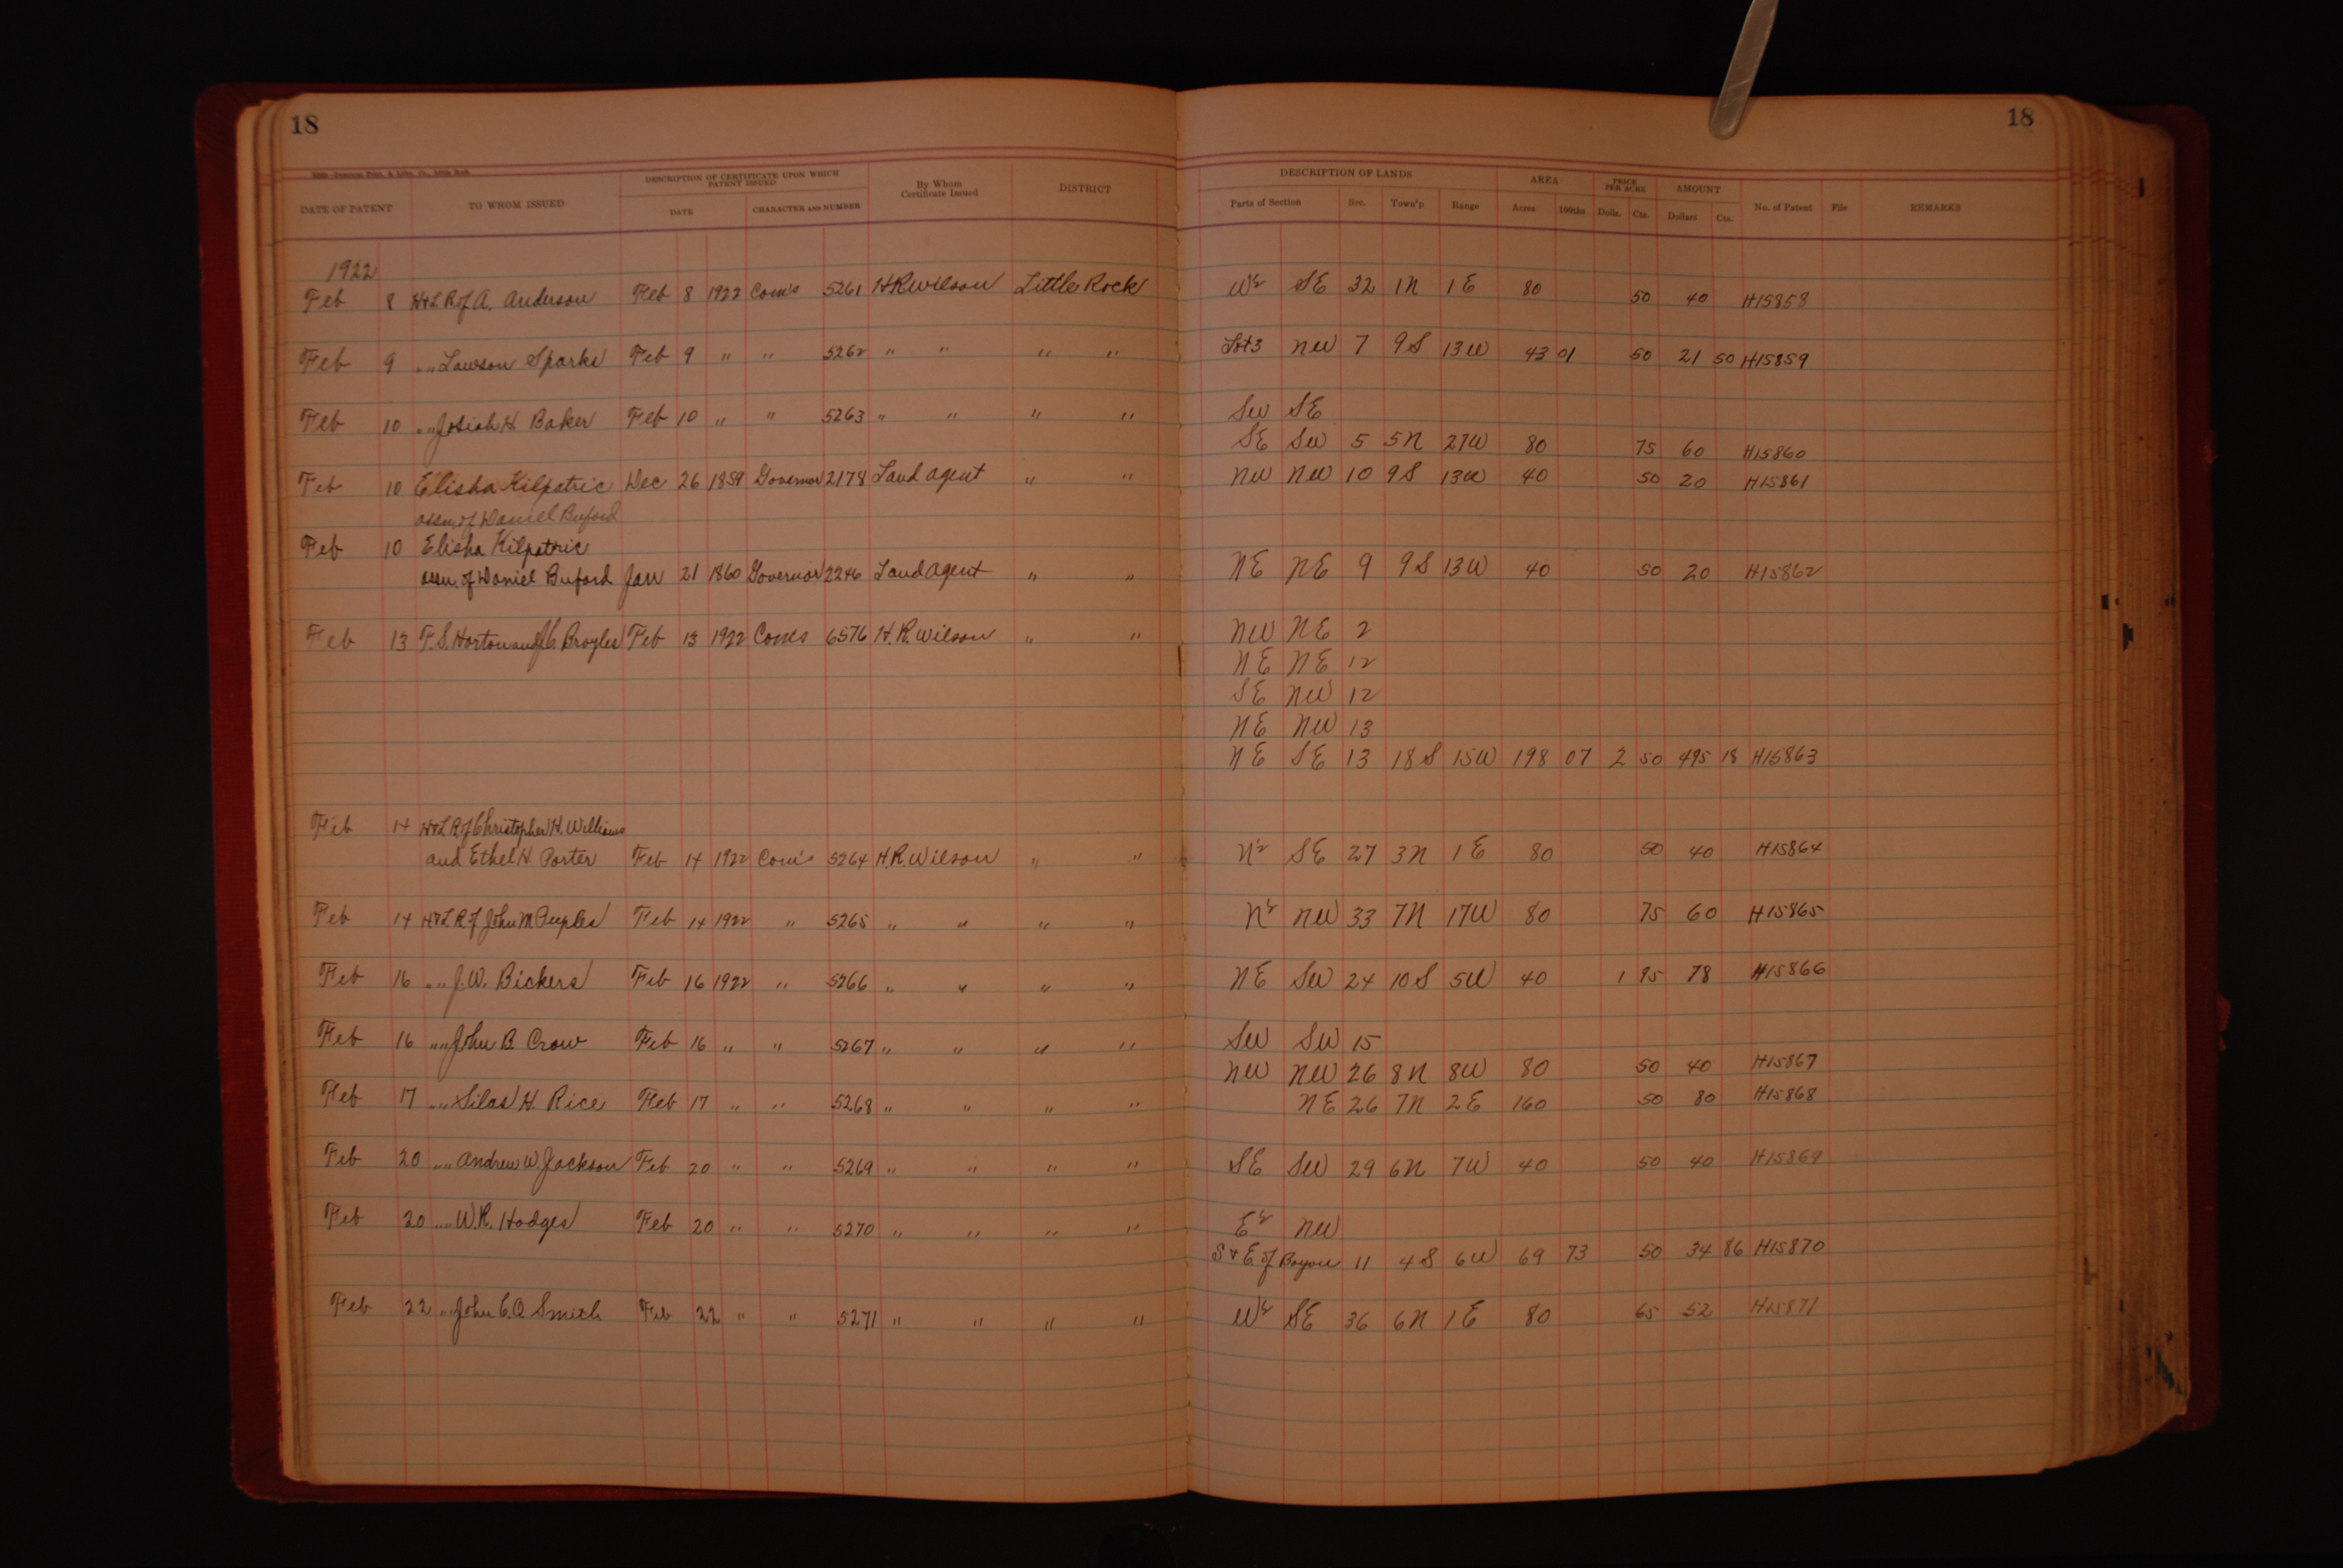 18
18
DATE OF PATENT TO WHOM ISSUED DESCRIPTION OF CERTIFICATE UPON WHICH PATENT ISSUED DATE CHARACTER AND NUMBER By Whom Certificate Issued DISTRICT DESCRIPTION OF LANDS Parts of Section Sec. Town'p Range AREA Acres 100ths PRICE PER ACRE Dolls. Cts. AMOUNT Dollars Cts. No. of Patent File REMARKS
1922
Feb 8 H&L R of A. Anderson Feb 8 1922 Com's 5261 H R Wilson Little Rock W½ SE 32 1N 1E 80 50 40 H15858
Feb 9 " " Lawson Sparks Feb 9 " " 5262 " " " " Lot 3 NW 7 9S 13W 43 01 50 21 50 H15859
Feb 10 " " Josiah H. Baker Feb 10 " " 5263 " " " " SW SE
SE SW 5 5N 27W 80 75 60 H15860
Feb 10 Elisha Kilpatric Dec 26 1859 Governor 2178 Land agent " " NW NW 10 9S 13W 40 50 20 H15861
assn. of Daniel Buford
Feb 10 Elisha Kilpatric
assn. of Daniel Buford Jan 21 1860 Governor 2246 Land agent " " NE NE 9 9S 13W 40 50 20 H15862
Feb 13 T. S. Horton and J C. Broyles Feb 13 1922 Coms 6576 H. R. Wilson " " NW NE 2
NE NE 12
SE NW 12
NE NW 13
NE SE 13 18S 15W 198 07 2 50 495 18 H15863
Feb 14 H&L R of Christopher H. Williams
and Ethel H. Porter Feb 14 1922 Com's 5264 H. R. Wilson " " N½ SE 27 3N 1E 80 50 40 H15864
Feb 14 H&L R of John M. Peeples Feb 14 1922 " 5265 " " " " N½ NW 33 7N 17W 80 75 60 H15865
Feb 16 " " J. W. Bickers Feb 16 1922 " 5266 " " " " NE SW 24 10S 5W 40 1 95 78 H15866
Feb 16 " " John B. Crow Feb 16 " " 5267 " " " " SW SW 15
NW NW 26 8N 8W 80 50 40 H15867
Feb 17 " " Silas H. Rice Feb 17 " " 5268 " " " " NE 26 7N 2E 160 50 80 H15868
Feb 20 " " Andrew W. Jackson Feb 20 " " 5269 " " " " SE SW 29 6N 7W 40 50 40 H15869
Feb 20 " " W. R. Hodges Feb 20 " " 5270 " " " " E½ NW
S & E of Bayou 11 4S 6W 69 73 50 34 86 H15870
Feb 22 " " John C. Q. Smith Feb 22 " " 5271 " " " " W½ SE 36 6N 1E 80 65 52 H15871